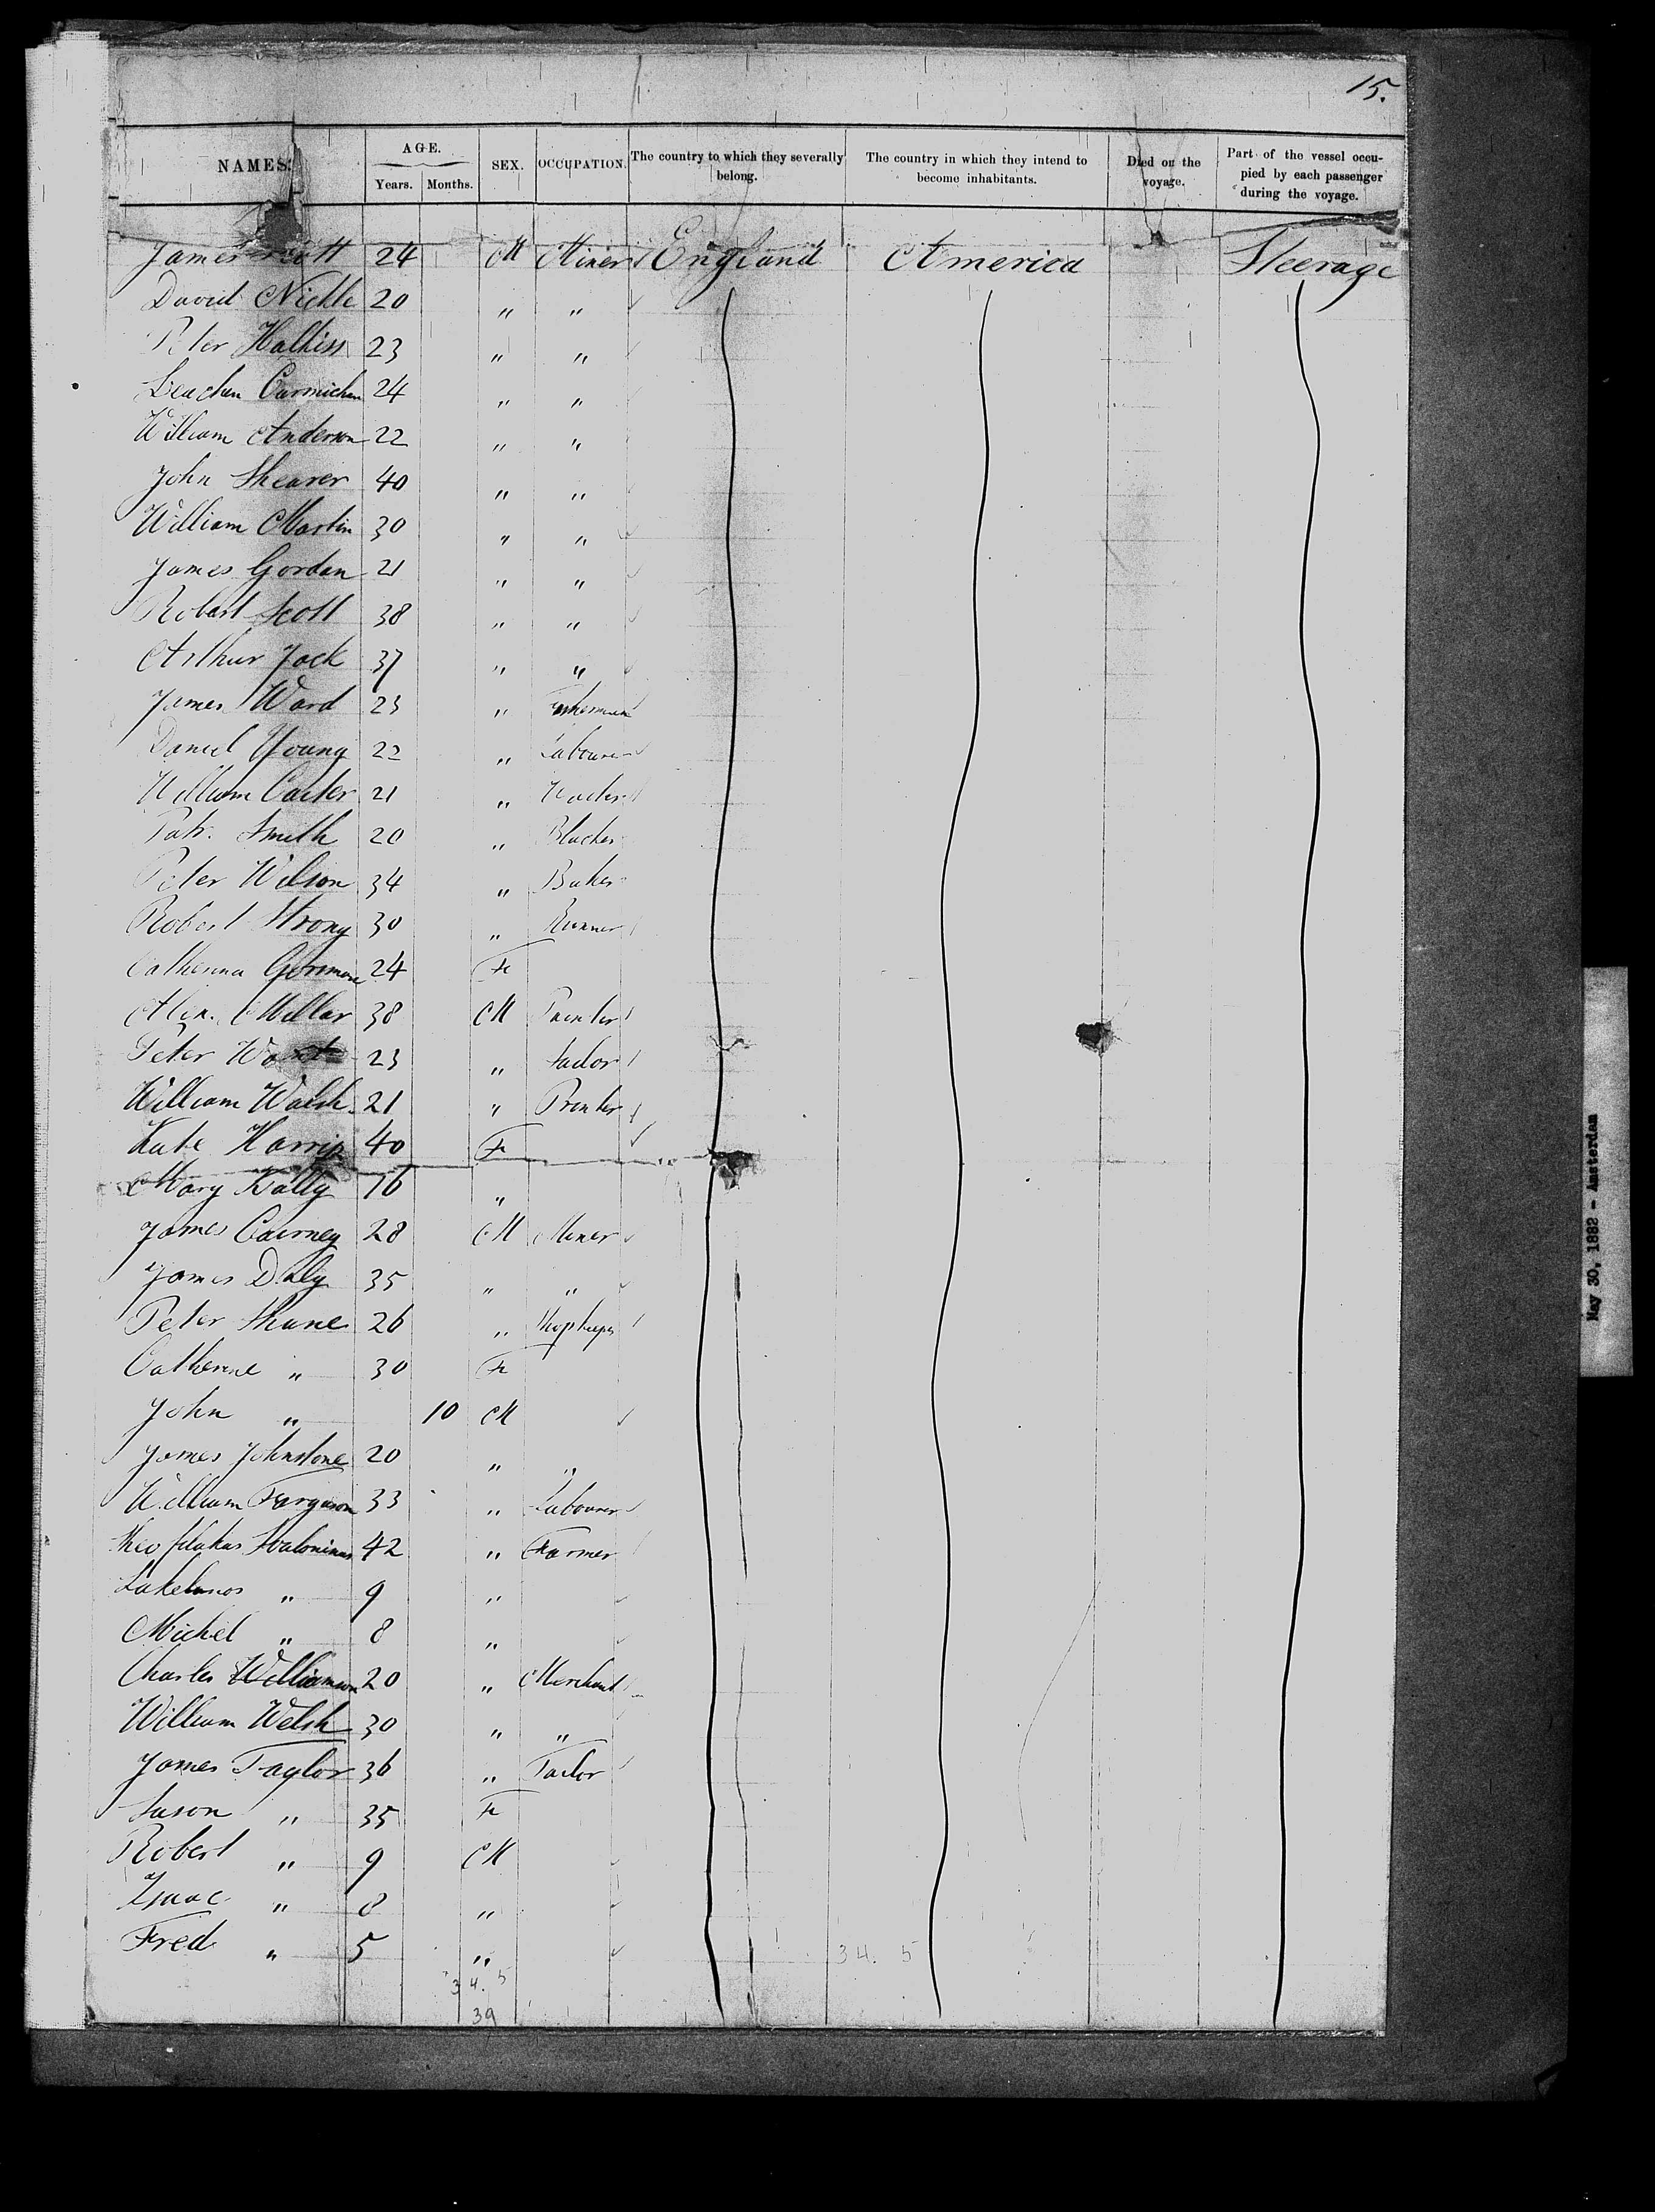 15.
NAMES. AGE. Years. Months. SEX. OCCUPATION. The country to which they severally belong. The country in which they intend to become inhabitants. Died on the voyage. Part of the vessel occupied by each passenger during the voyage.
James Scott 24 M Miner England America Steerage
David Nickle 20 " "
Peter 23 " "
24 " "
William Anderson 22 " "
John Shearer 40 " "
William Martin 30 " "
James Gordon 21 " "
Robert Scott 38 " "
Arthur Jack 37 " "
James Ward 23 "
Daniel Young 22 " Labourer
William Carter 21 "
Patr. Smith 20 "
Peter Wilson 34 " Baker
Robert Strong 30 "
Catherina 24 Fe
Alex. Millar 38 M
Peter 23 " Tailor
William Walsh 21 " Printer
Kate Harris 40 Fe
Mary Kelly 16 "
James Cairney 28 M Miner
James Daly 35 " "
Peter Shane 26 " Shopkeeper
Catherine " 30 Fe
John " 10 M
James Johnstone 20 " "
William Ferguson 33 " Labourer
42 " Farmer
" 9 "
Michel " 8 "
Charles Williamson 20 " Merchant
William Welsh 30 " "
James Taylor 36 " Tailor
Suson " 35 Fe
Robert " 9 M
Isaac " 8 "
Fred " 5 "
34. 5
34. 5
39
May 30, 1882 - Amsterdam